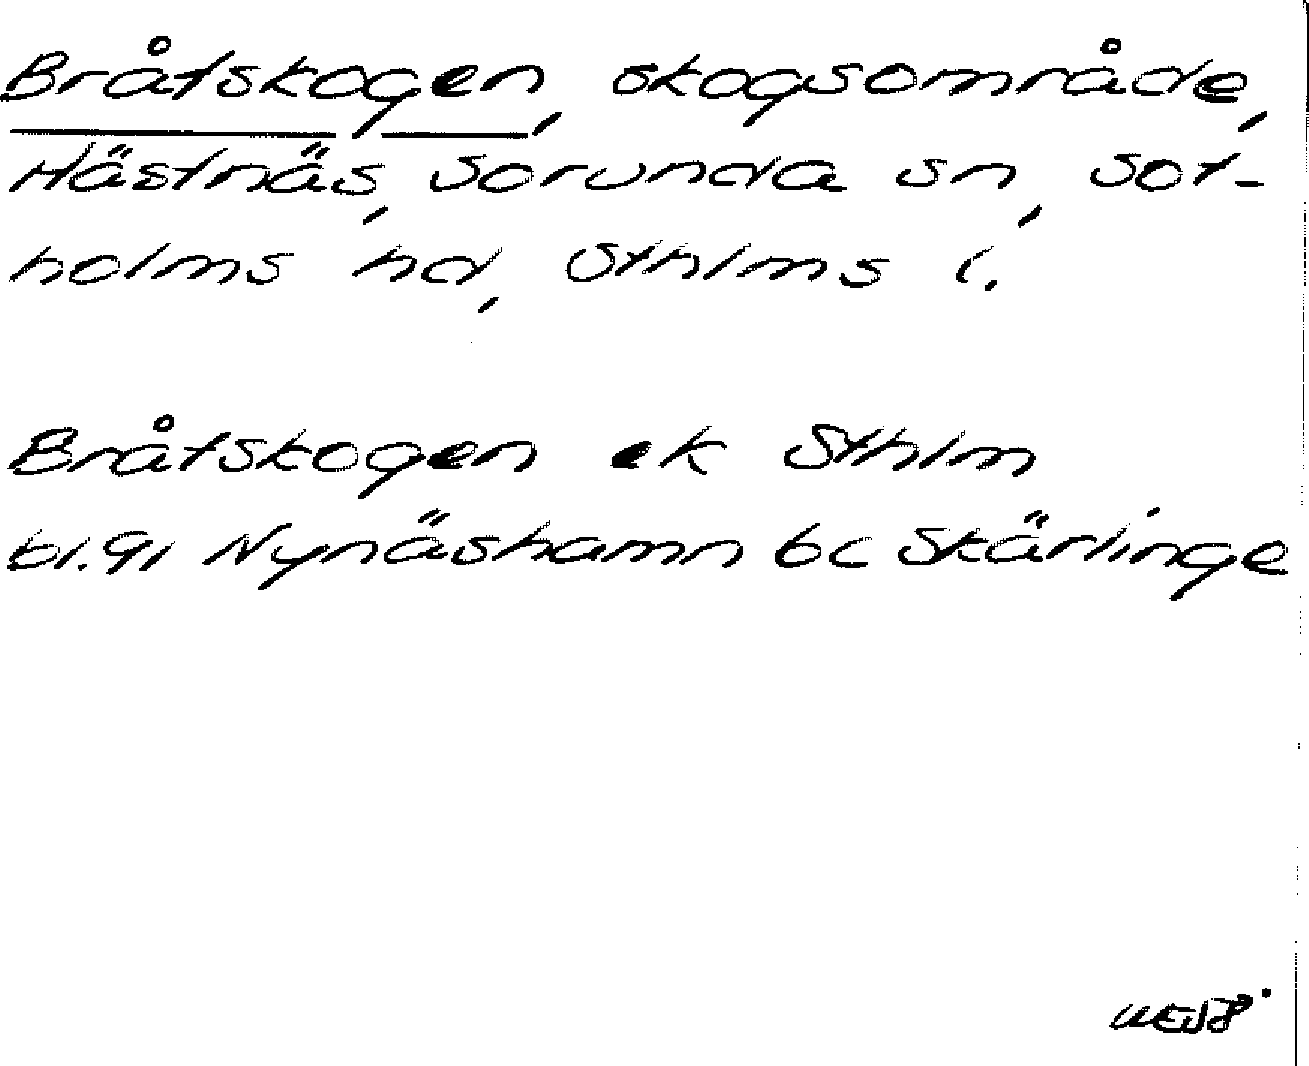 Bråtskogen, skogsområde,
Hästnäs, Sorunda sn, Sot-
holms hd, Sthlms l.
Bråtskogen ek Sthlm
bl. 91 Nynäshamn bc Skärlinge